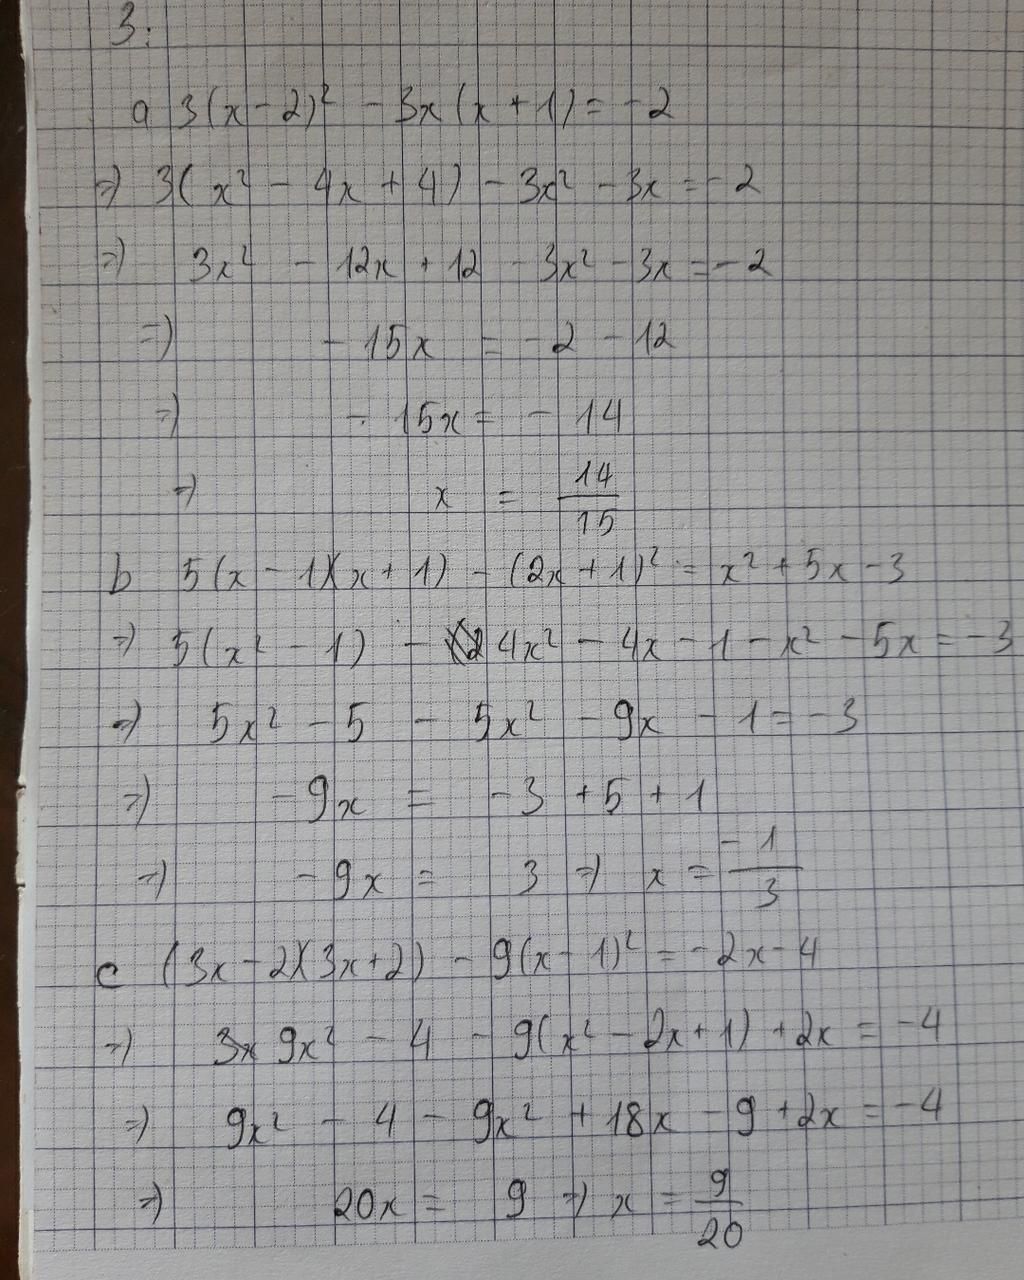 3:
a 3(x - 2)² - 3x(x + 1) = -2
=) 3(x² - 4x + 4) - 3x² - 3x = -2
=) 3x² - 12x + 12 - 3x² - 3x = -2
=) - 15x = -2 - 12
=) - 15x = - 14
=) x = 14/15
b 5(x - 1)(x + 1) - (2x + 1)² = x² + 5x - 3
=) 5(x² - 1) - 4x² - 4x - 1 - x² - 5x = -3
=) 5x² - 5 - 5x² - 9x - 1 = -3
=) -9x = -3 + 5 + 1
=) -9x = 3 =) x = -1/3
c (3x - 2)(3x + 2) - 9(x - 1)² = -2x - 4
=) 3x 9x² - 4 - 9(x² - 2x + 1) + 2x = -4
=) 9x² - 4 - 9x² + 18x - 9 + 2x = -4
=) 20x = 9 =) x = 9/20